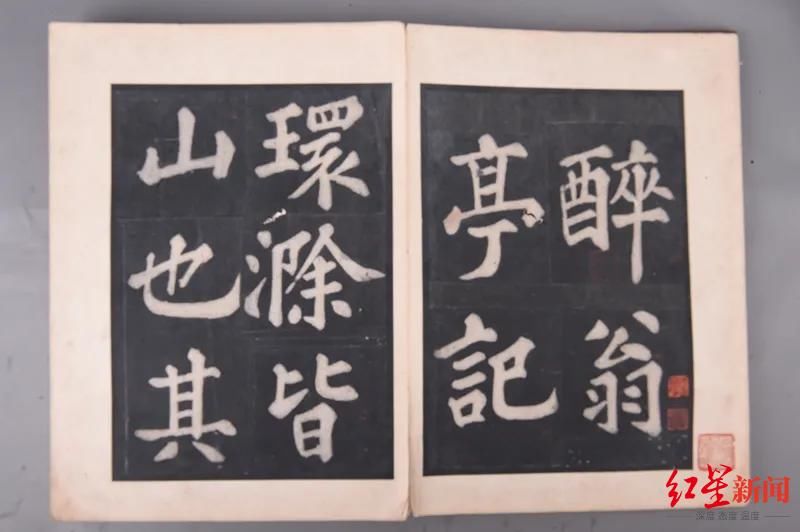 醉翁
亭記
環滁皆
山也其
红星新闻
深度 态度 温度